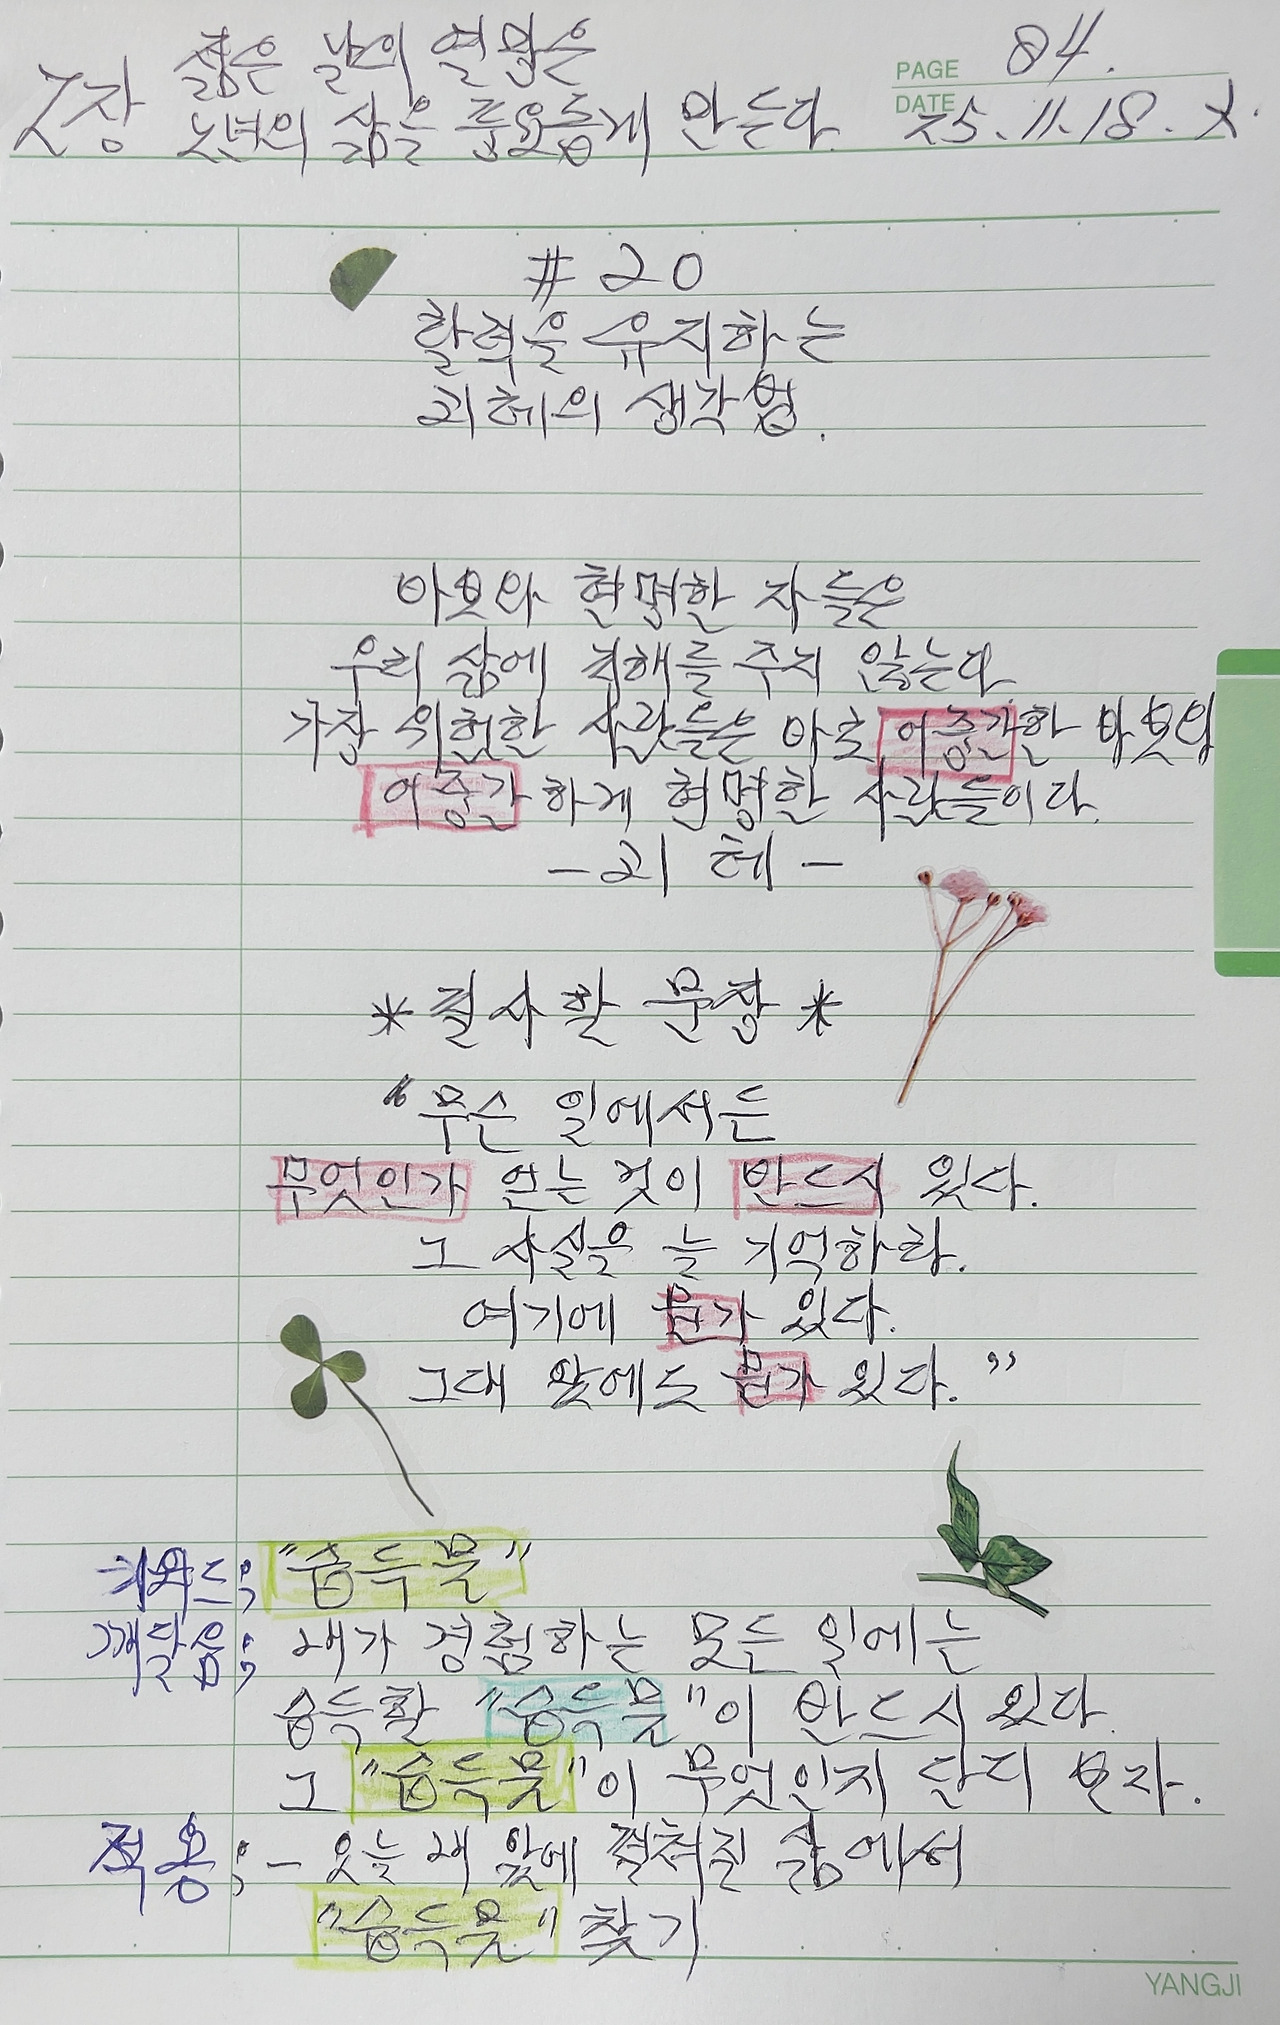 2장 젊은 날의 열망은
노년의 삶을 풍요롭게 만든다.
PAGE 84.
DATE 25.11.18.火.
#20
활력을 유지하는
괴테의 생각법.
바보와 현명한 자들은
우리 삶에 피해를 주지 않는다
가장 위험한 사람들은 바로 어중간한 바보와
어중간하게 현명한 사람들이다.
-괴테-
*필사할 문장*
"무슨 일에서든
무엇인가 얻는 것이 반드시 있다.
그 사실을 늘 기억하라.
여기에 뭔가 있다.
그대 앞에도 뭔가 있다."
키워드; "습득물"
깨달음; 내가 경험하는 모든 일에는
습득할 "습득물"이 반드시 있다
그 "습득물"이 무엇인지 단디 보자.
적용; - 오늘 내 앞에 펼쳐진 삶에서
"습득물" 찾기
YANGJI